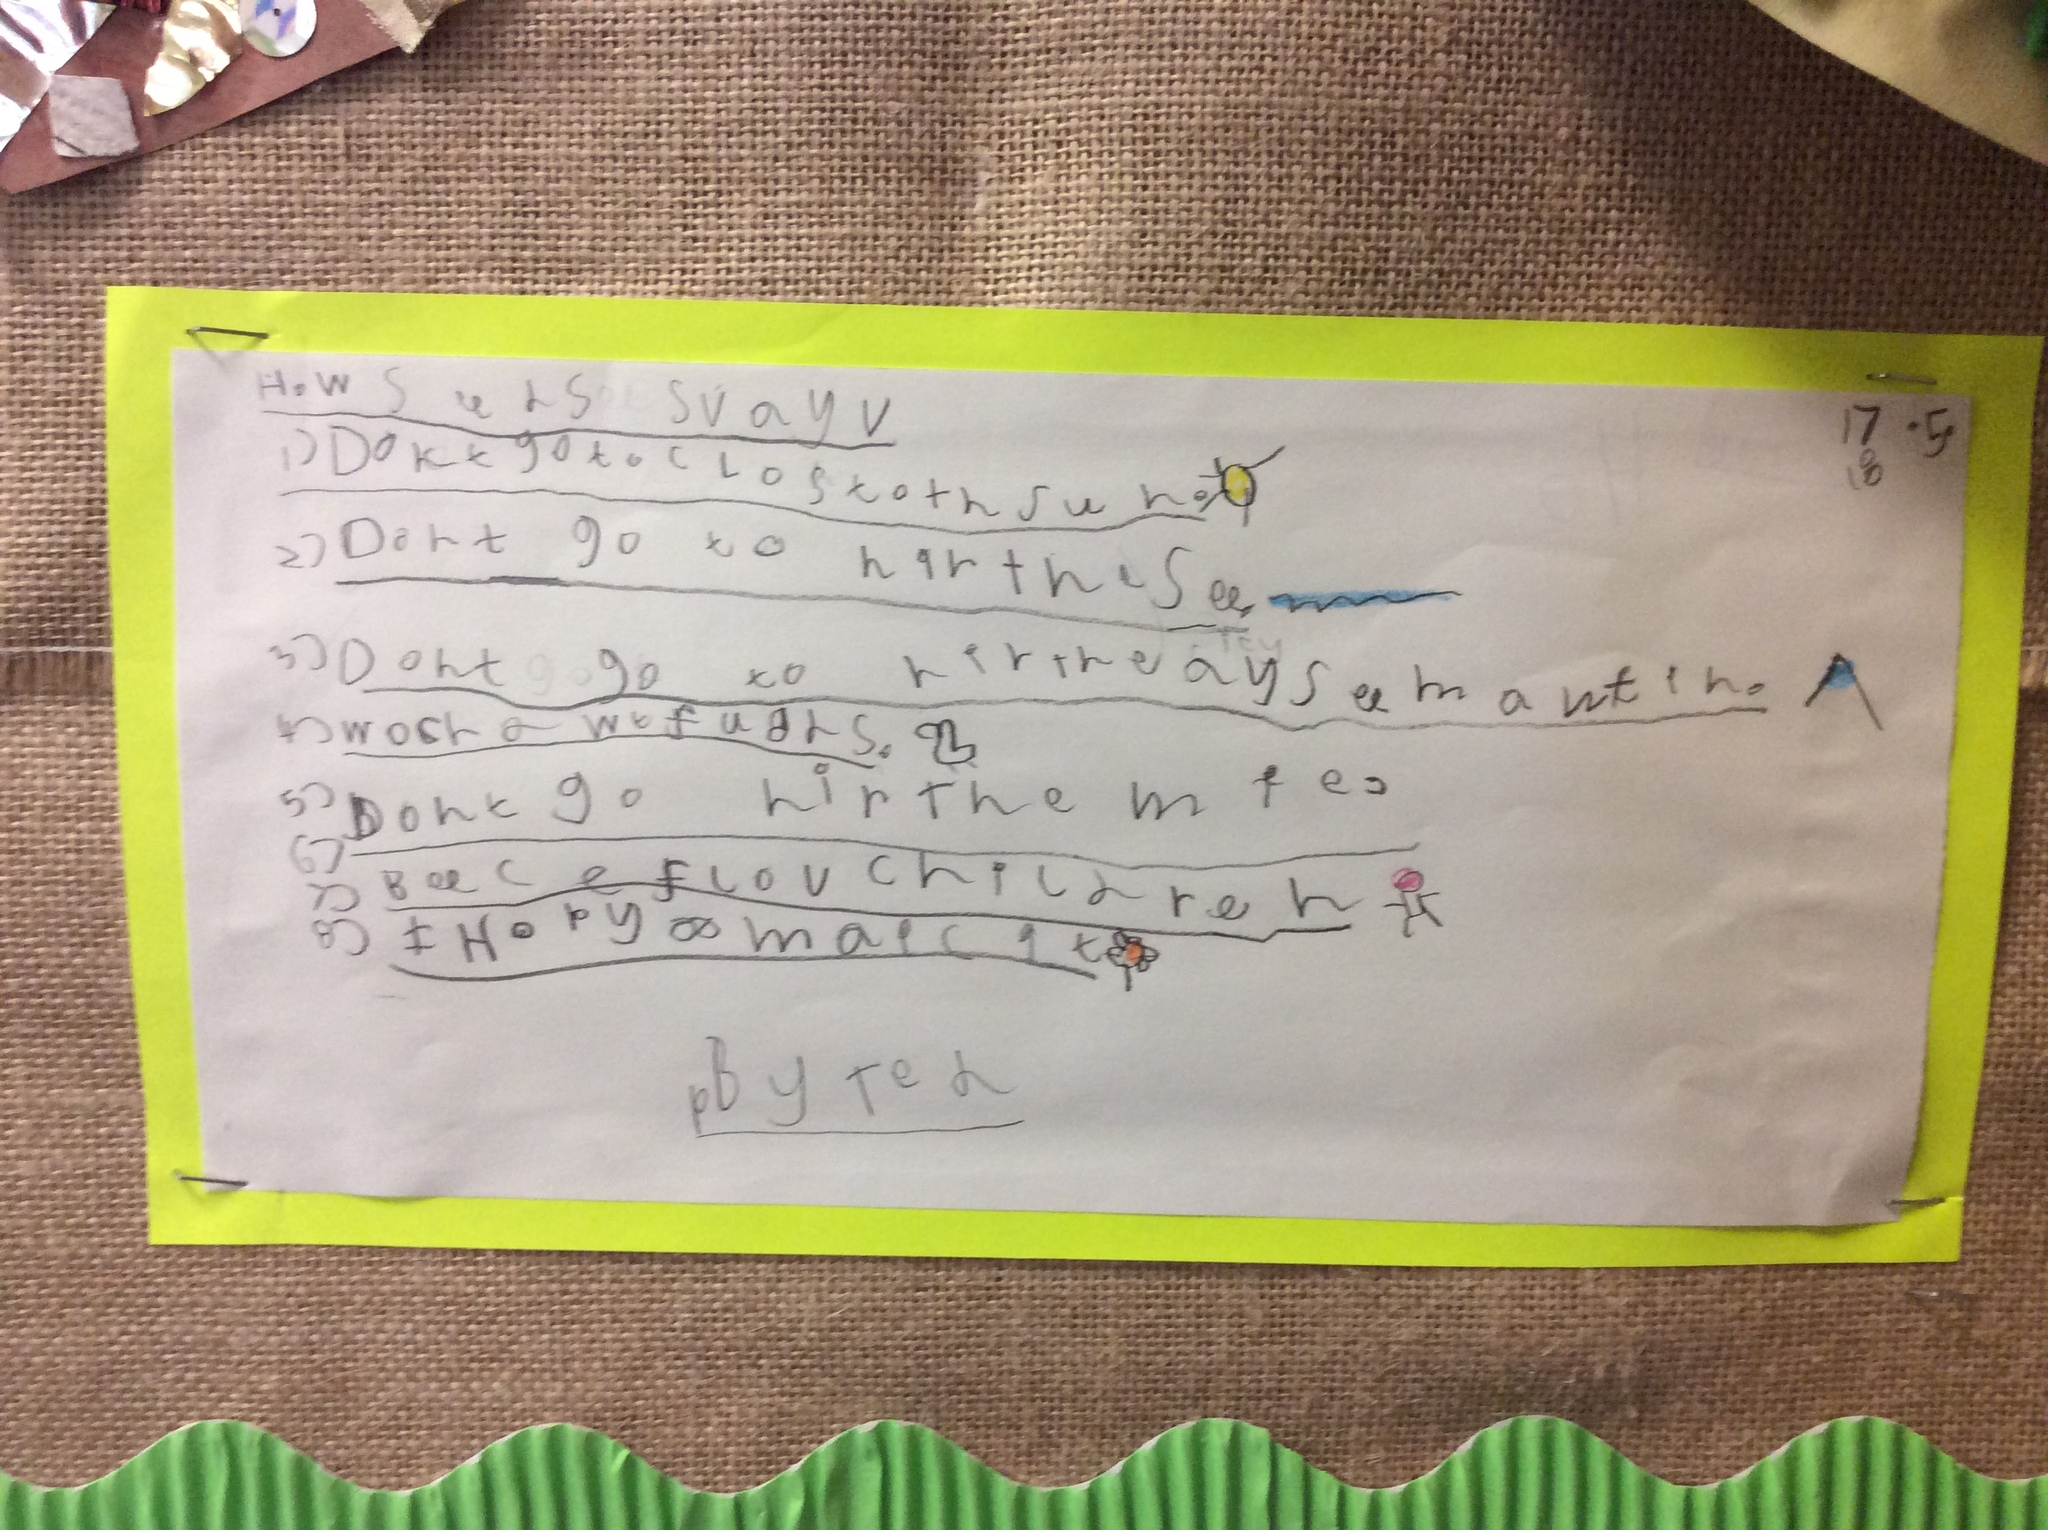 How Seeds Svayv
17 .5.
18
1) Dont go to clos to th sun.
2) Dont go to nir the See.
3) Dont go to nir the aysee mawtin.
4) Woch a wt f udds.
5) Dont go nir the m
6)
7) Bee cefl ov children
8) I Hop yoo mac it
By Ted